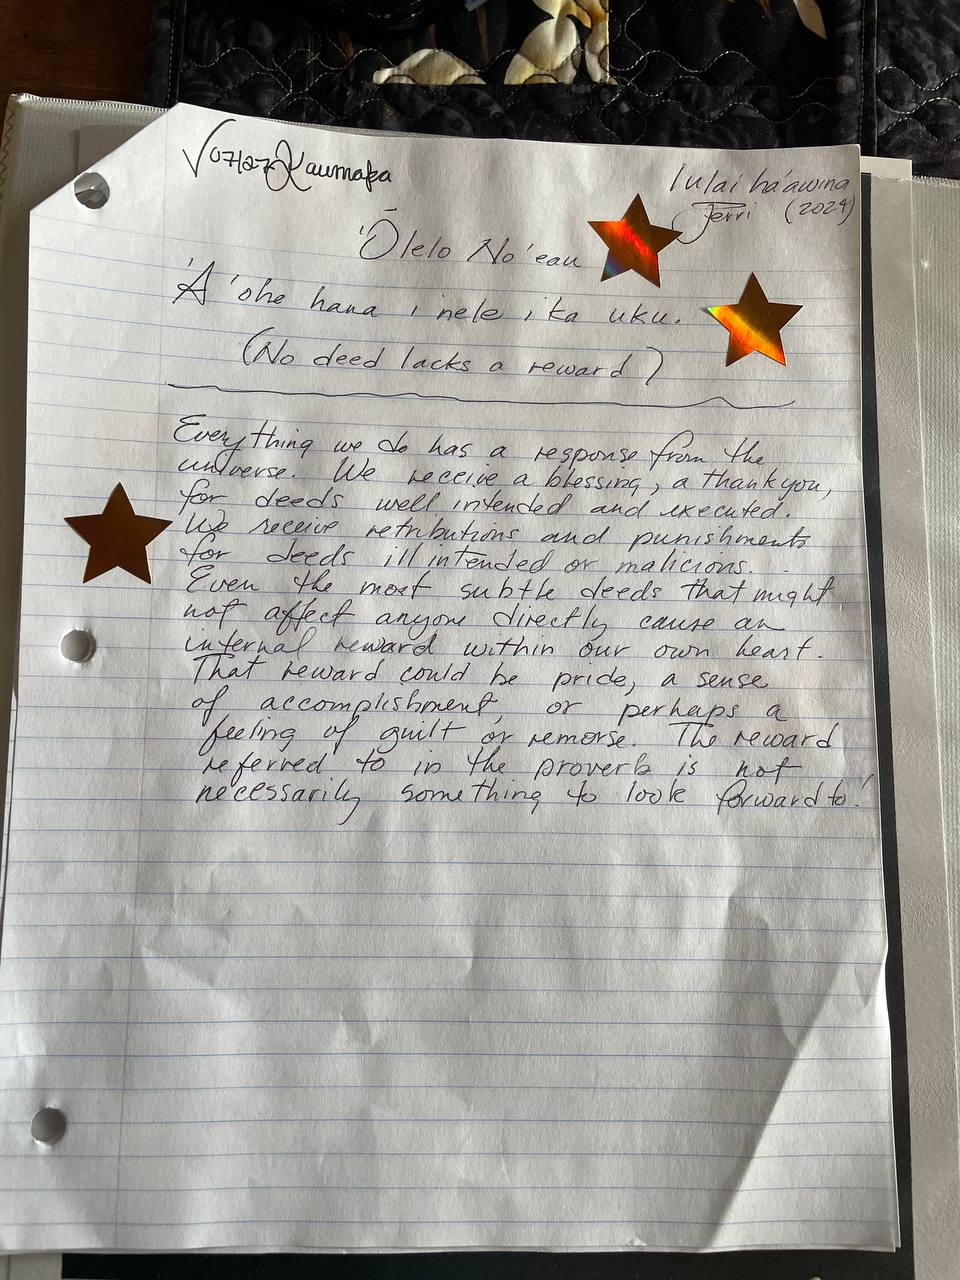 √ 07/27 Kaumaka
Iulai ha'awina
Jerri (2024)
'Ōlelo No'eau
'A'ohe hana i nele i ka uku.
(No deed lacks a reward)
Everything we do has a response from the
universe. We receive a blessing, a thank you,
for deeds well intended and executed.
We receive retributions and punishments
for deeds ill intended or malicious.
Even the most subtle deeds that might
not affect anyone directly cause an
internal reward within our own heart.
That reward could be pride, a sense
of accomplishment, or perhaps a
feeling of guilt or remorse. The reward
referred to in the proverb is not
necessarily something to look forward to!